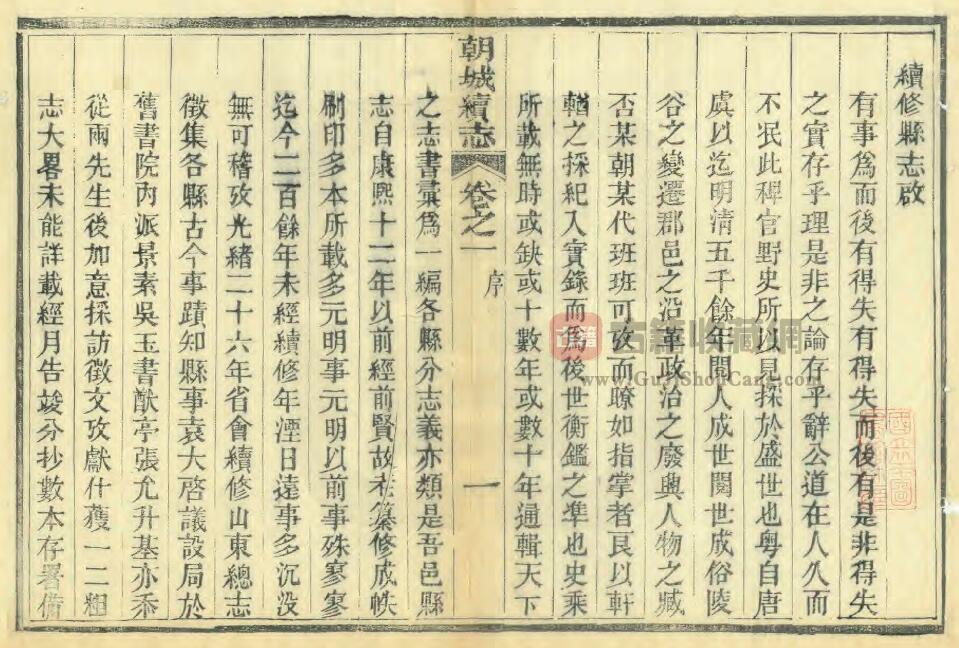 續修縣志啟
有事爲而後有得失有得失而後有是非得失
之實存乎理是非之論存乎辭公道在人久而
不泯此稗官野史所以見採於盛世也粵自唐
虞以迄明清五千餘年閱人成世閱世成俗陵
谷之變遷郡邑之沿革政治之廢興人物之臧
否某朝某代班班可攷而瞭如指掌者良以軒
輶之採紀入實錄而爲後世衡鑑之凖也史乘
所載無時或缺或十數年或數十年通輯天下
朝城續志 卷之一 序 一
之志書彙爲一編各縣分志義亦類是吾邑縣
志自康熙十二年以前經前賢故老纂修成帙
刷印多本所載多元明事元明以前事殊寥寥
迄今二百餘年未經續修年湮日遠事多沉没
無可稽攷光緒二十六年省會續修山東總志
徵集各縣古今事蹟知縣事袁大啓議設局於
舊書院內派景素吳玉書猷亭張允升基亦忝
從兩先生後加意採訪徵文攷獻什獲一二粗
志大畧未能詳載經月告竣分抄數本存署備
古籍收藏网
www.GujiShouCang.com